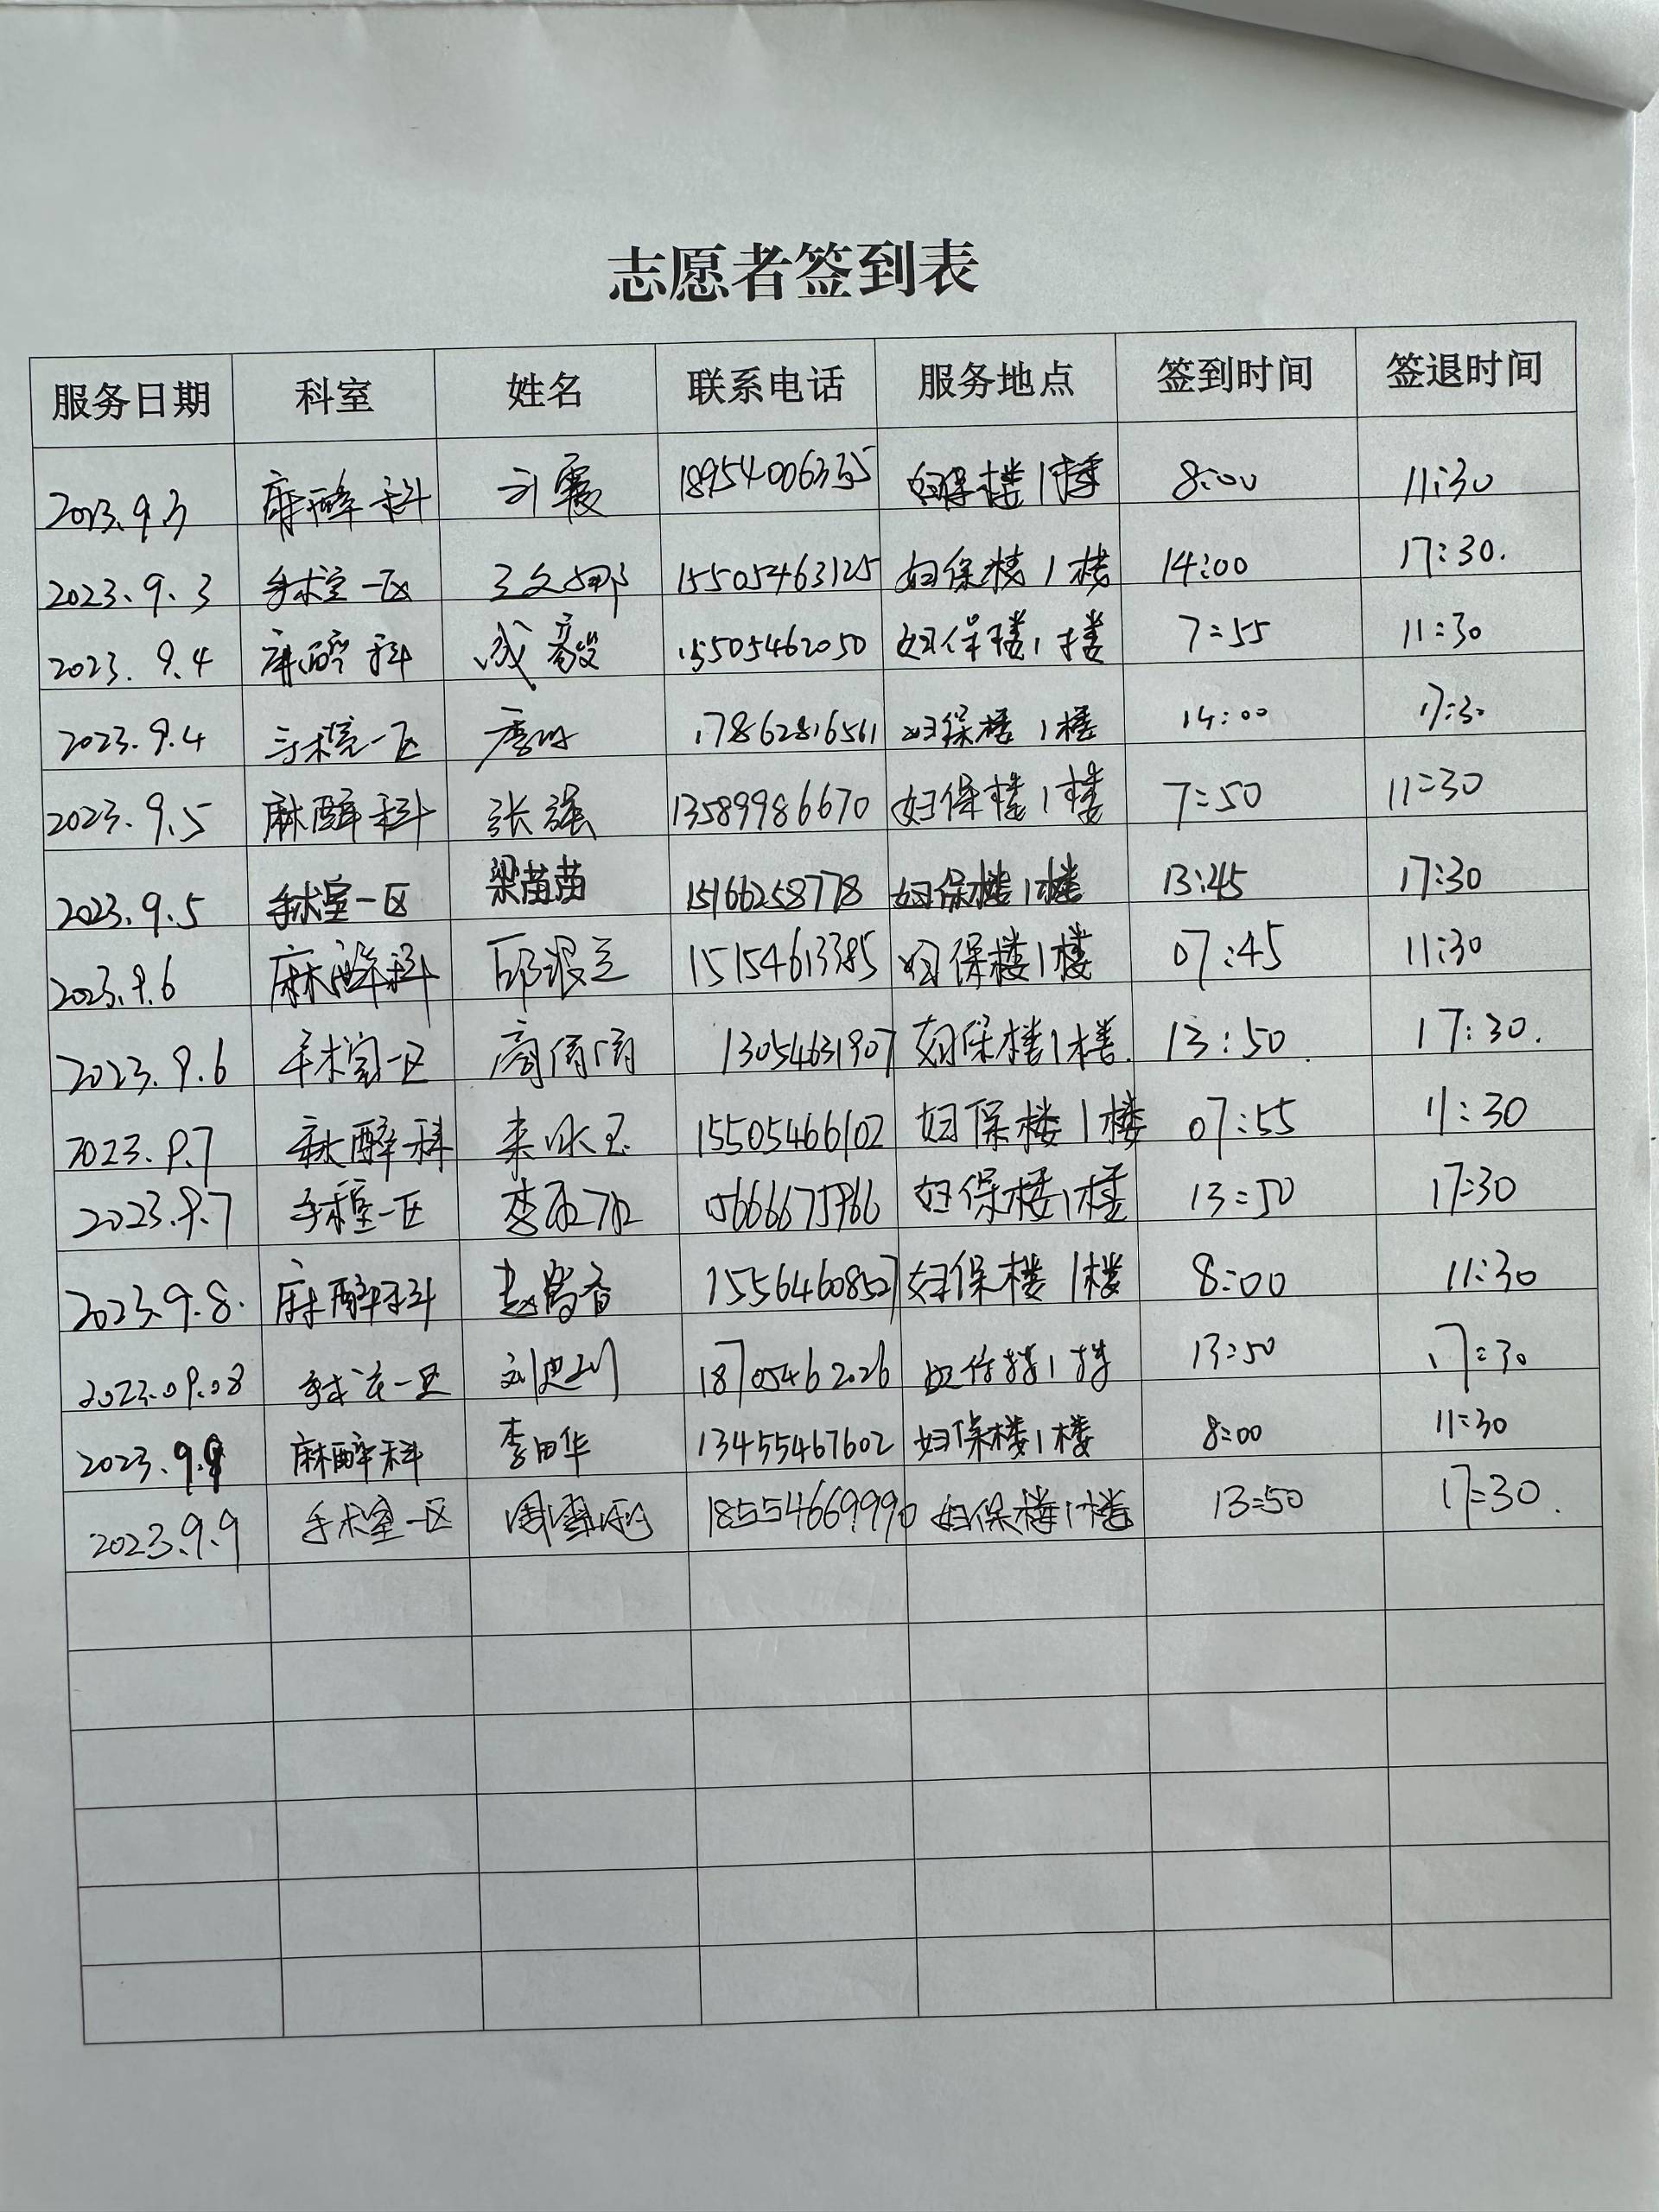 志愿者签到表
服务日期 科室 姓名 联系电话 服务地点 签到时间 签退时间
2023.9.3 麻醉科 刘霞 18954006335 妇保楼1楼 8:00 11:30
2023.9.3 手术室一区 王文娜 15505463125 妇保楼1楼 14:00 17:30.
2023.9.4 麻醉科 成毅 15505462050 妇保楼1楼 7:55 11:30
2023.9.4 手术室一区 17862816561 妇保楼1楼 14:00 17:30
2023.9.5 麻醉科 张强 13589986670 妇保楼1楼 7:50 11:30
2023.9.5 手术室一区 梁苗苗 15166258778 妇保楼1楼 13:45 17:30
2023.9.6 麻醉科 15154613385 妇保楼1楼 07:45 11:30
2023.9.6 手术室一区 高倩倩 13054631907 妇保楼1楼. 13:50 17:30.
2023.9.7 麻醉科 15505466102 妇保楼1楼 07:55 11:30
2023.9.7 手术室一区 15666675966 妇保楼1楼 13:50 17:30
2023.9.8. 麻醉科 15564608527 妇保楼1楼 8:00 11:30
2023.09.08 手术室一区 18705462026 妇保楼1楼 13:50 17:30
2023.9.9 麻醉科 李田华 13455467602 妇保楼1楼 8:00 11:30
2023.9.9 手术室一区 18554669990 妇保楼1楼 13:50 17:30.